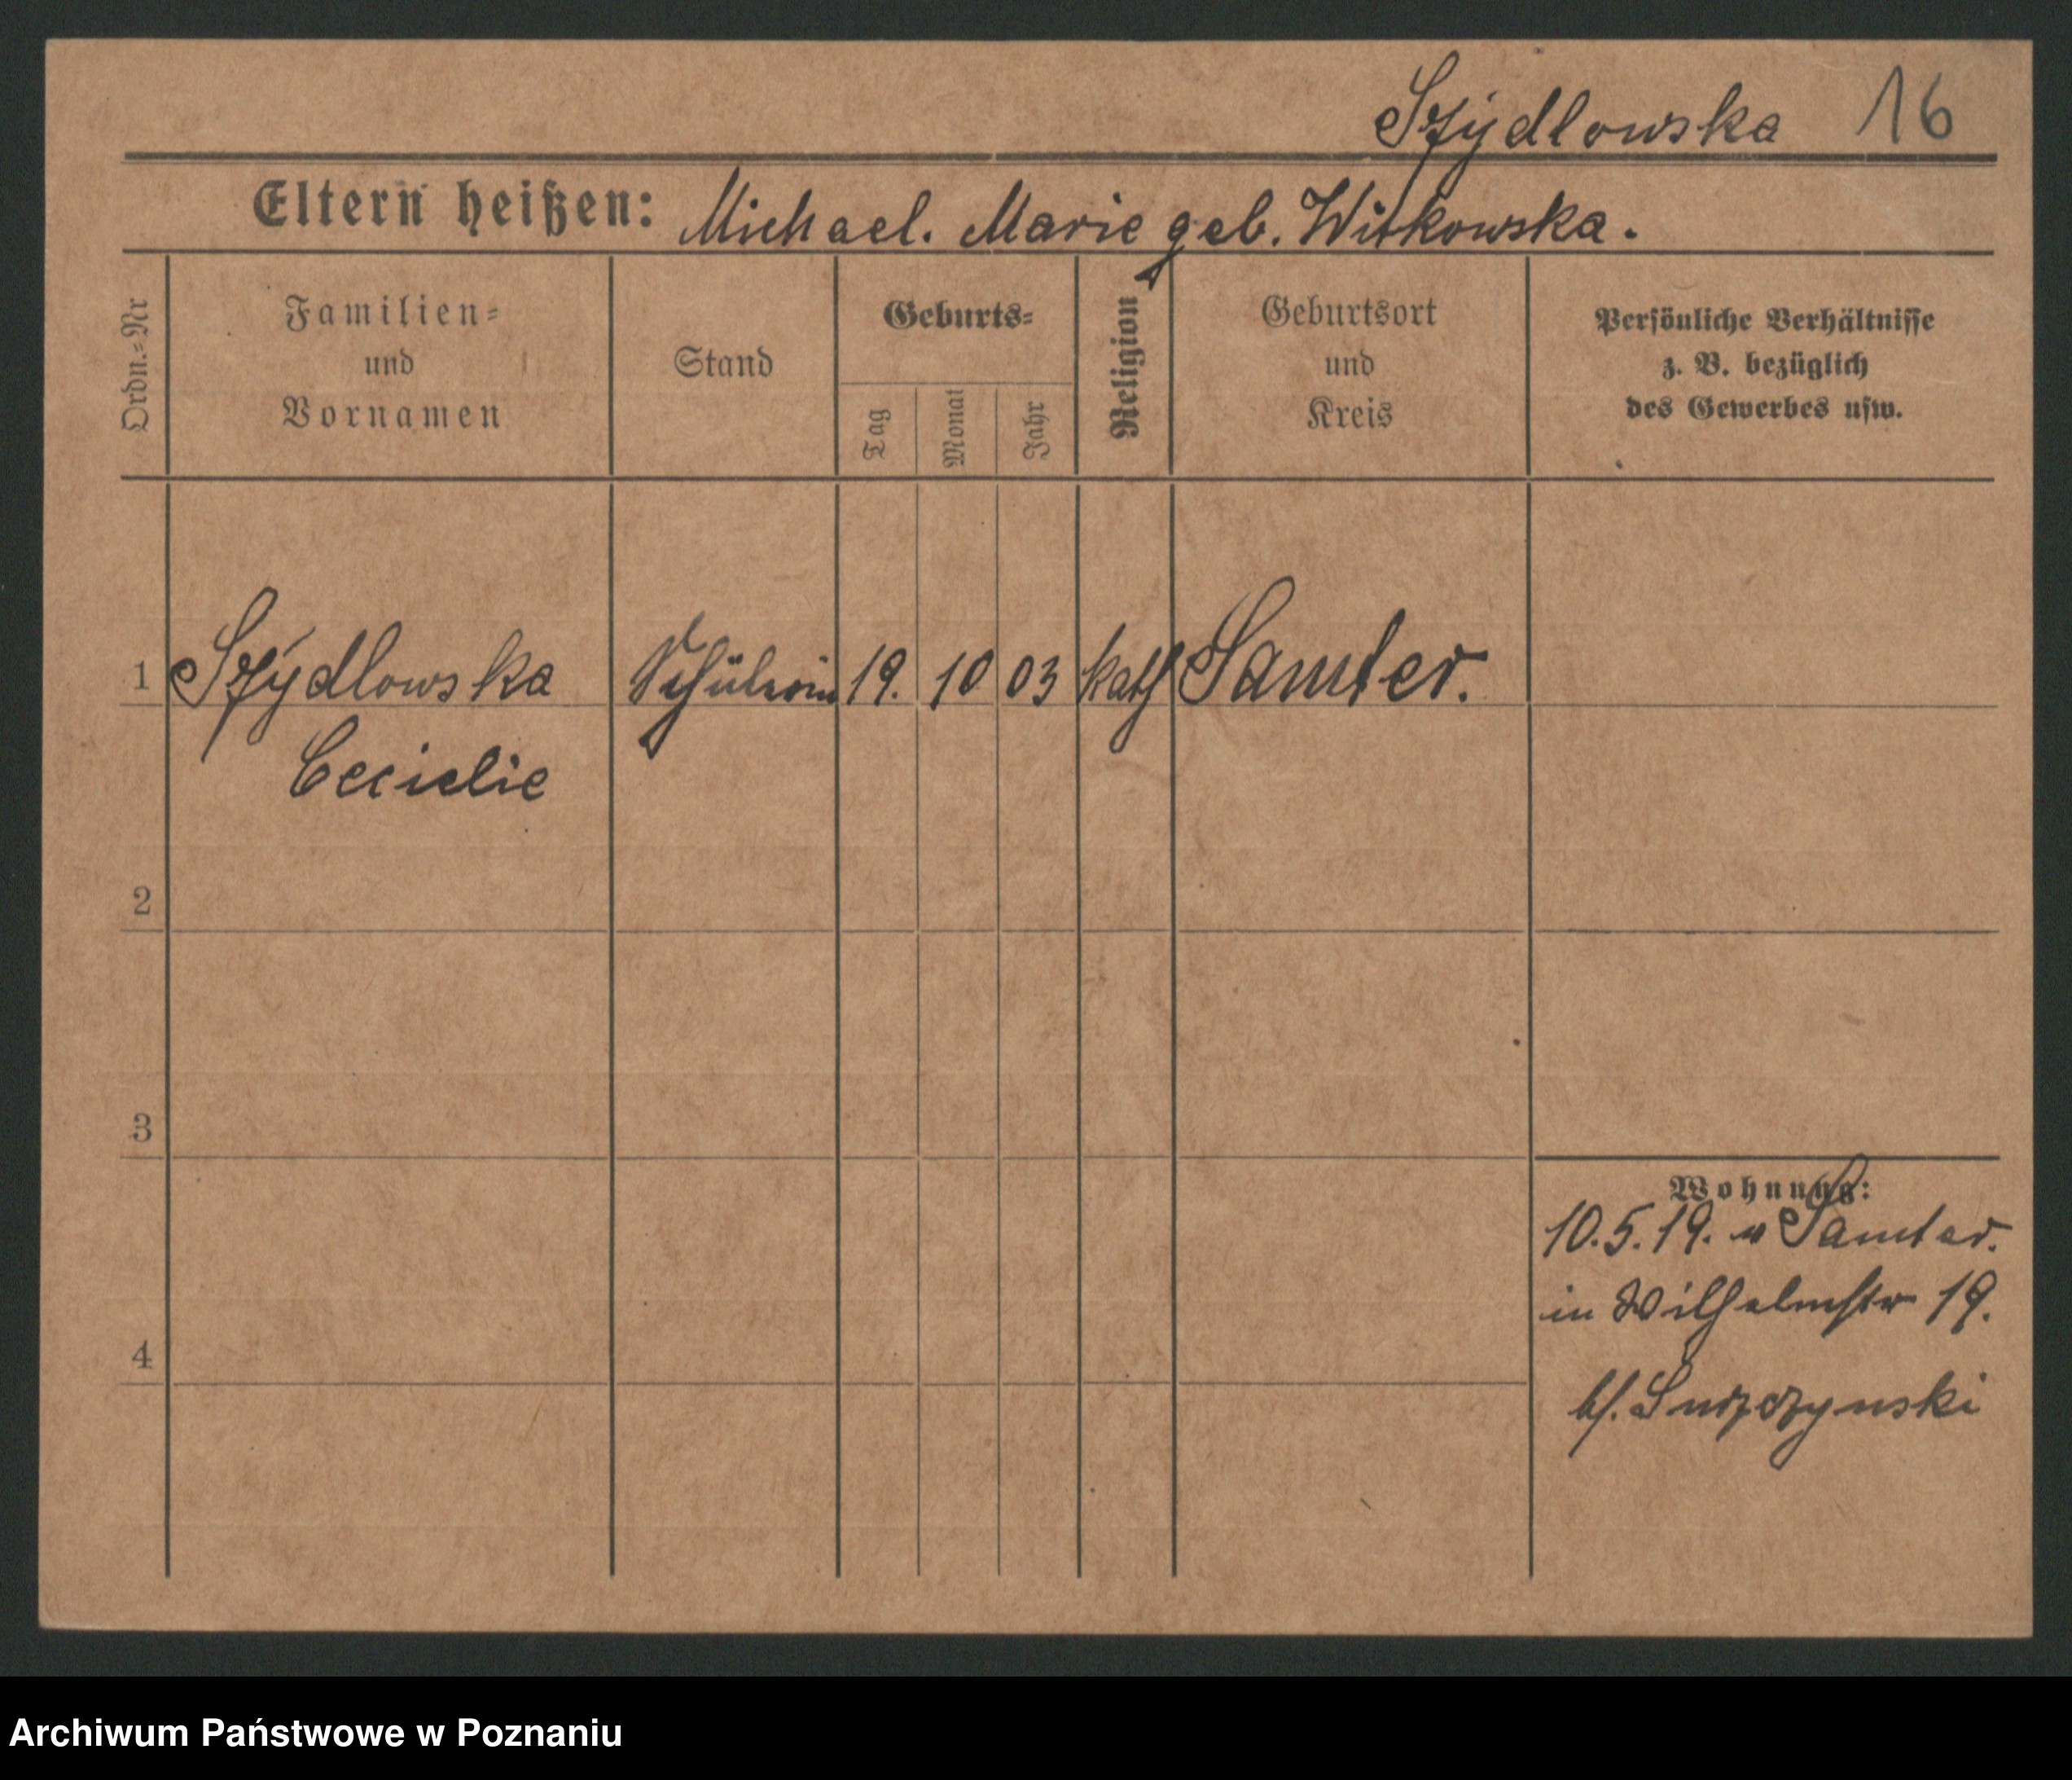 Szydlowska 16
Eltern heißen: Michael. Marie geb. Witkowska.
Ordn.=Nr
Familien=
und
Vornamen
Stand
Geburts=
Tag
Monat
Jahr
Religion
Geburtsort
und
Kreis
Persönliche Verhältnisse
z. B. bezüglich
des Gewerbes usw.
1 Szydlowska Schülerin 19. 10 03 kath Samter.
Cecielie
2
3
4
Wohnung:
10.5.19. v Samter.
in Wilhelmstr 19.
b/. Surzynski
Archiwum Państwowe w Poznaniu